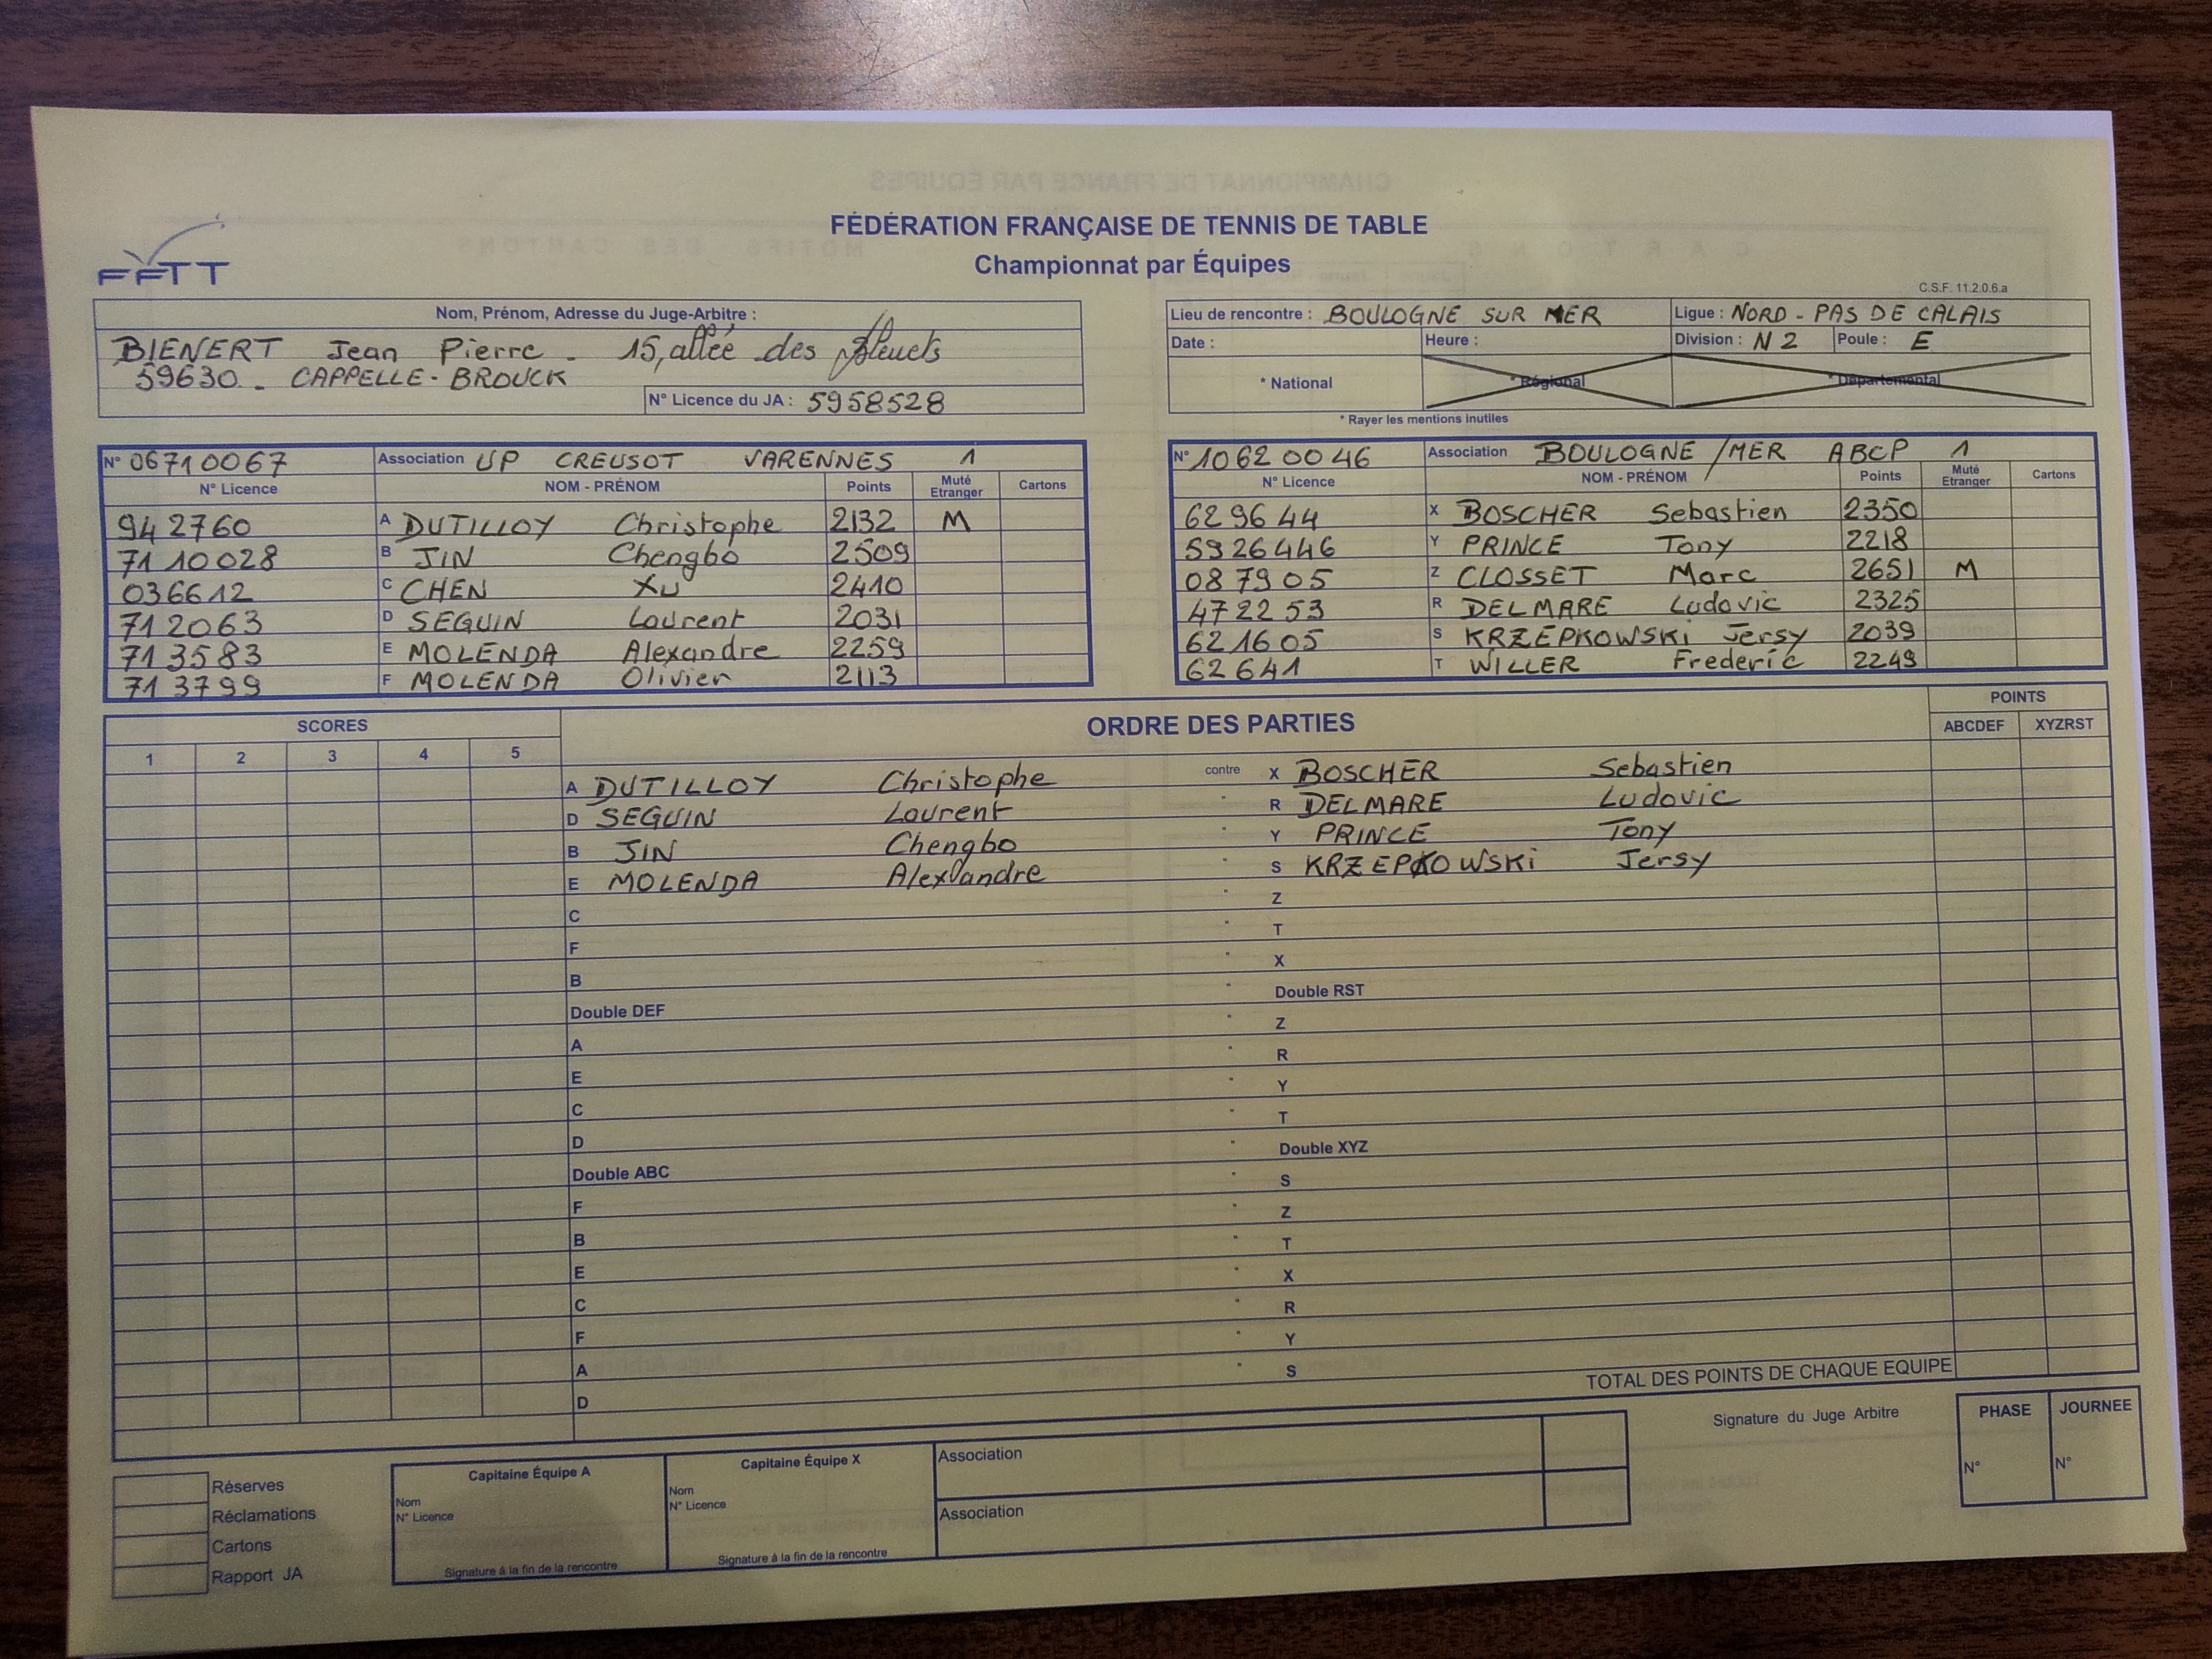 FÉDÉRATION FRANÇAISE DE TENNIS DE TABLE
Championnat par Équipes
FFTT
C.S.F. 11.2.0.6.a
Nom, Prénom, Adresse du Juge-Arbitre :
BIENERT Jean Pierre - 15, allée des Bleuets
59630 - CAPPELLE-BROUCK
N° Licence du JA : 5958528
Lieu de rencontre : BOULOGNE SUR MER Ligue : NORD - PAS DE CALAIS
Date : Heure : Division : N2 Poule : E
* National * Régional * Départemental
* Rayer les mentions inutiles
N° 06710067 Association UP CREUSOT VARENNES 1
N° Licence NOM - PRÉNOM Points Muté Etranger Cartons
942760 A DUTILLOY Christophe 2132 M
7110028 B JIN Chengbo 2509
036612 C CHEN Xu 2410
712063 D SEGUIN Laurent 2031
713583 E MOLENDA Alexandre 2259
713799 F MOLENDA Olivier 2113
N° 10620046 Association BOULOGNE/MER ABCP 1
N° Licence NOM - PRÉNOM Points Muté Etranger Cartons
629644 X BOSCHER Sebastien 2350
5926446 Y PRINCE Tony 2218
087905 Z CLOSSET Marc 2651 M
472253 R DELMARE Ludovic 2325
621605 S KRZEPKOWSKi Jersy 2039
62641 T WILLER Frederic 2249
SCORES ORDRE DES PARTIES POINTS
1 2 3 4 5 ABCDEF XYZRST
A DUTILLOY Christophe contre X BOSCHER Sebastien
D SEGUIN Laurent " R DELMARE Ludovic
B JIN Chengbo " Y PRINCE Tony
E MOLENDA Alexandre " S KRZEPKOWSKi Jersy
C " Z
F " T
B " X
Double DEF " Double RST
A " Z
E " R
C " Y
D " T
Double ABC " Double XYZ
F " S
B " Z
E " T
C " X
F " R
A " Y
D " S
TOTAL DES POINTS DE CHAQUE EQUIPE
Réserves
Réclamations
Cartons
Rapport JA
Capitaine Équipe A
Nom
N° Licence
Signature à la fin de la rencontre
Capitaine Équipe X
Nom
N° Licence
Signature à la fin de la rencontre
Association
Association
Signature du Juge Arbitre
PHASE JOURNEE
N° N°